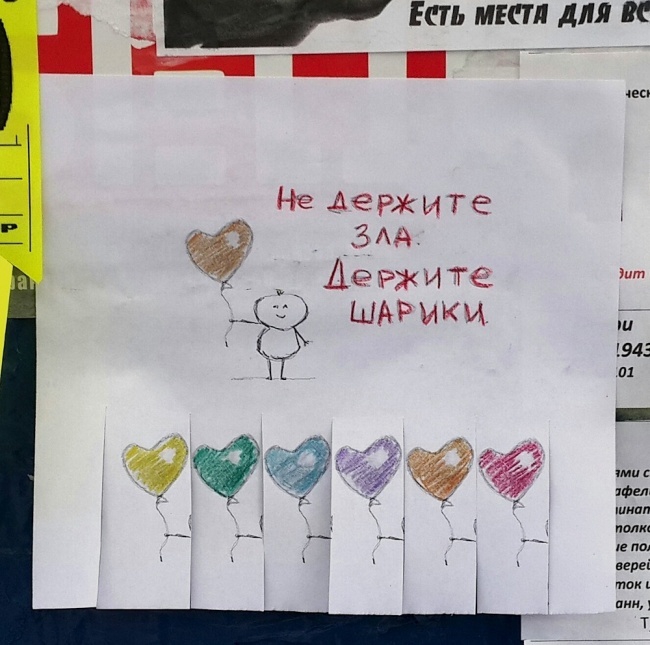 Есть места для вс
Не держите
зла.
Держите
шарики.
дит
1943
101
ями с
афел
инат
толко
ие пол
верей
ток и
анн, у